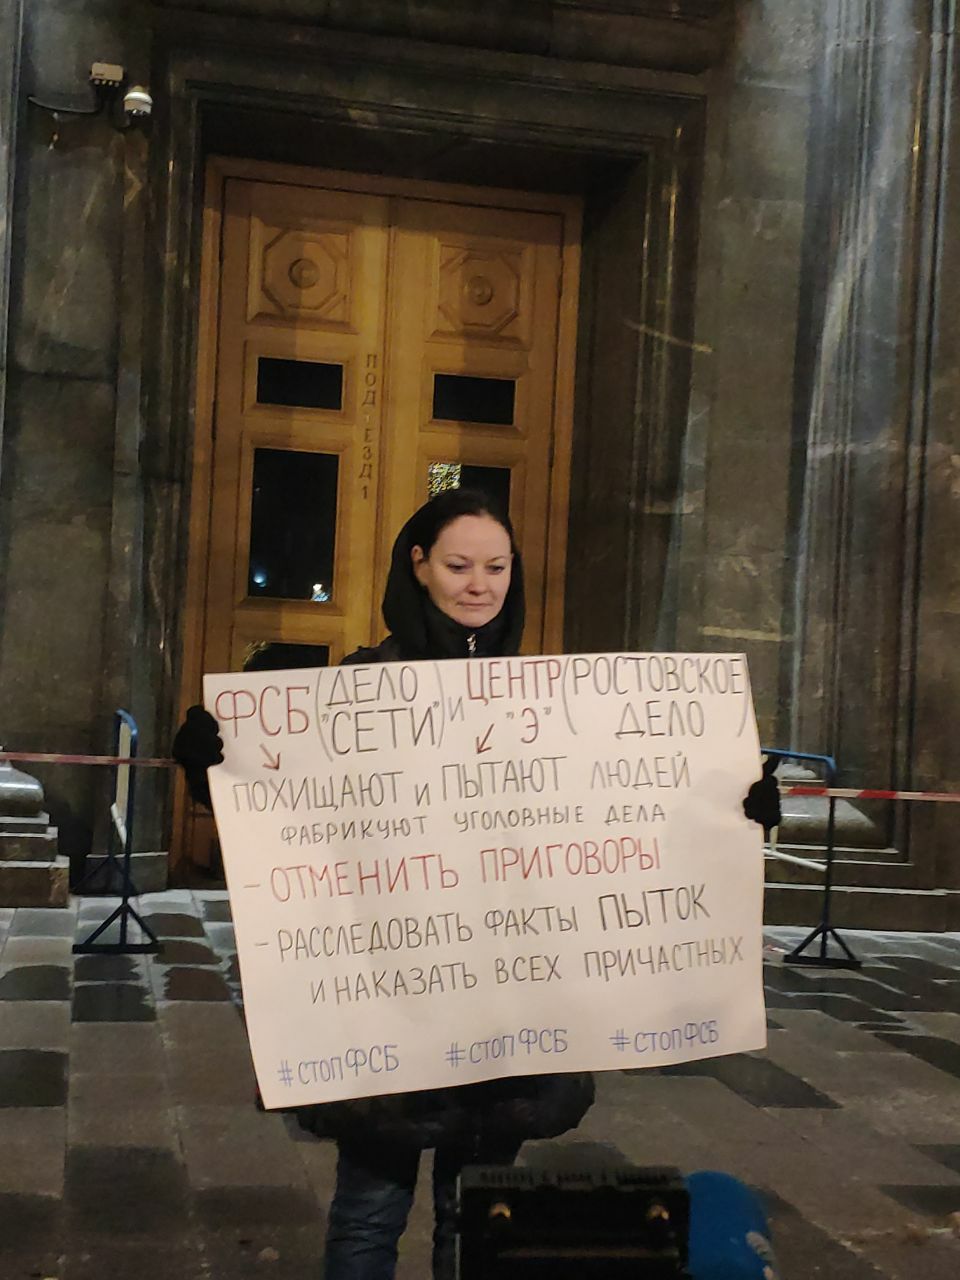 ПОДЪЕЗД 1
ФСБ (ДЕЛО "СЕТИ") и ЦЕНТР "Э" (РОСТОВСКОЕ ДЕЛО)
ПОХИЩАЮТ и ПЫТАЮТ ЛЮДЕЙ
ФАБРИКУЮТ УГОЛОВНЫЕ ДЕЛА
- ОТМЕНИТЬ ПРИГОВОРЫ
- РАССЛЕДОВАТЬ ФАКТЫ ПЫТОК
И НАКАЗАТЬ ВСЕХ ПРИЧАСТНЫХ
#СТОПФСБ #СТОПФСБ #СТОПФСБ